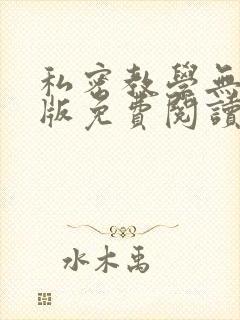 私密教學無
版免費閱讀
水木禹